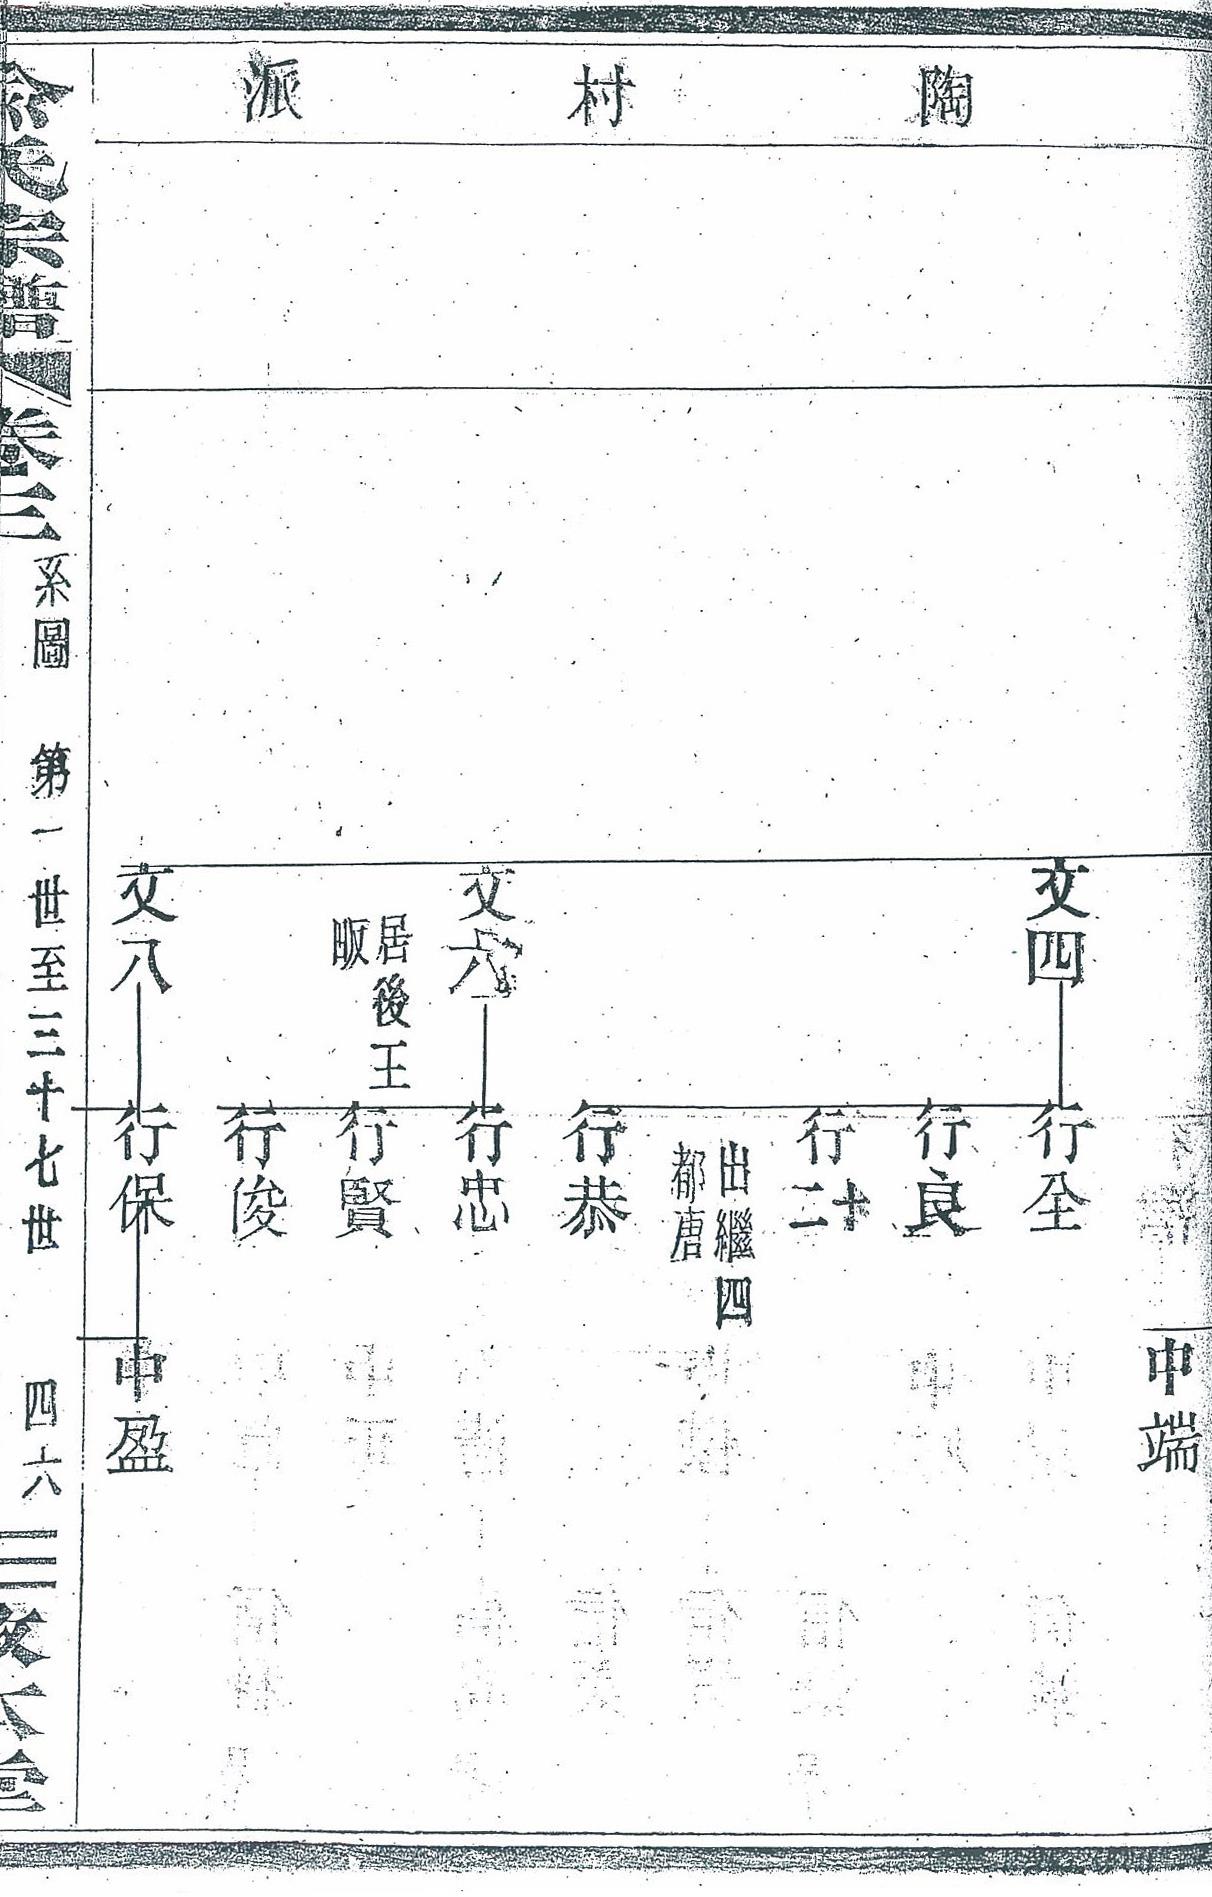 陶村派
中端
文四
行全
行良
行十二
出繼四
都唐
行恭
文六
行忠
行賢
居後王
畈
行俊
文八
行保
中盈
俞氏宗譜 卷三 系圖 第一世至三十七世 四六 三